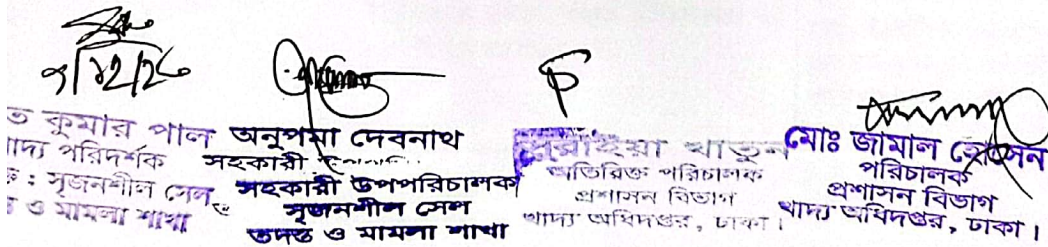 ৩/১২/২৫
ত কুমার পাল
খাদ্য পরিদর্শক
: সৃজনশীল সেল
ও মামলা শাখা
অনুপমা দেবনাথ
সহকারী
সহকারী উপপরিচালক
সৃজনশীল সেল
তদন্ত ও মামলা শাখা
খাতুন
অতিরিক্ত পরিচালক
প্রশাসন বিভাগ
খাদ্য অধিদপ্তর, ঢাকা।
মোঃ জামাল হোসেন
পরিচালক
প্রশাসন বিভাগ
খাদ্য অধিদপ্তর, ঢাকা।